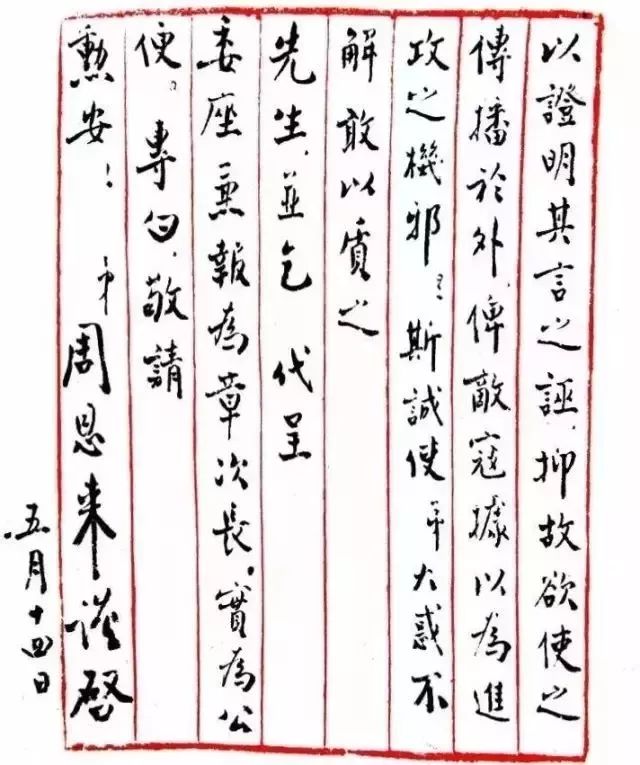 以證明其言之誣，抑故欲使之
傳播於外，俾敵寇據以為進
攻之機邪？斯誠使弟大惑不
解敢以質之
先生，並乞 代呈
委座兼報為章次長，實為公
便。專函，敬請
勳安！ 弟周恩来謹啓
五月十四日